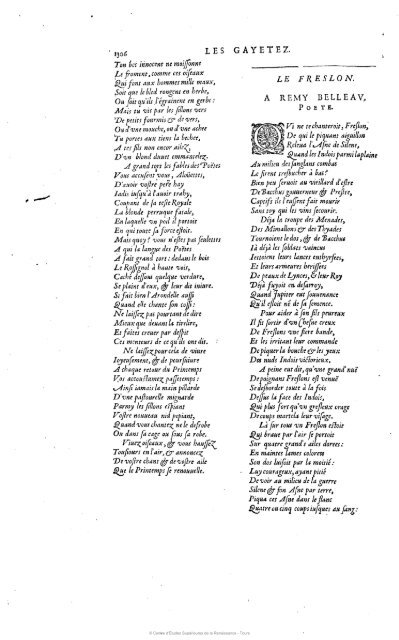 1306
LES GAYETEZ.
Ton bec innocent ne moissonne
Le froment, comme ces oiseaux
Qui font aux hommes mille maux,
Soit que le bled rongent en herbe,
Ou soit qu'ils l'égrainent en gerbe:
Mais tu vis par les sillons vers
De petits fourmis & de vers,
Ou d'vne mouche, ou d'vne achee
Tu portes aux tiens la bechee,
A tes fils non encor ailez,
D'vn blond duuet emmantelez.
A grand tort les fables des Poëtes
Vous accusent vous, Alouëtes,
D'auoir vostre pere hay
Iadis iusqu'à l'auoir trahy,
Coupant de sa teste Royale
La blonde perruque fatale,
En laquelle vn poil il portoit
En qui toute sa force estoit.
Mais quoy! vous n'estes pas seulettes
A qui la langue des Poëtes
A fait grand tort: dedans le bois
Le Rossignol à haute vois,
Caché dessous quelque verdure,
Se plaint d'eux, & leur dit iniure.
Si fait bien l'Arondelle aussi
Quand elle chante son cossi:
Ne laissez pas pourtant de dire
Mieux que deuant la tirelire,
Et faites creuer par despit
Ces menteurs de ce qu'ils ont dit.
Ne laissez pour cela de viure
Ioyeusement, & de poursuiure
A chaque retour du Printemps
Vos accoustumez passetemps:
Ainsi iamais la main pillarde
D'vne pastourelle mignarde
Parmy les sillons espiant
Vostre nouueau nid pepiant,
Quand vous chantez ne le desrobe
Ou dans sa cage ou sous sa robe.
Viuez oiseaux, & vous haussez
Tousiours en l'air, & annoncez
De vostre chant & de vostre aile
Que le Printemps se renouuelle.
LE FRESLON.
A REMY BELLEAV,
POETE.
QVi ne te chanteroit, Freslon,
De qui le piquant aiguillon
Releua l'Asne de Silene,
Quand les Indois parmi la plaine
Au milieu des sanglans combat
Le firent tresbucher à bas?
Bien peu seruoit au vieillard d'estre
De Bacchus gouuerneur & Prestre,
Captif ils l'eussent fait mourir
Sans toy qui les vins secourir.
Déja la troupe des Menades,
Des Mimallons & des Thyades
Tournoient le dos, & de Bacchus
Ià déjà les soldats vaincus
Iettoient leurs lances enthyrsées,
Et leurs armeures herissées
De peaux de Lynces, & leur Roy
Déjà fuyoit en desarroy,
Quand Jupiter eut souuenance
Qu'il estoit né de sa semence.
Pour aider à son fils peureux
Il fit sortir d'vn Chesne creux
De Freslons vne fiere bande,
Et les irritant leur commande
De piquer la bouche & les yeux
Des nuds Indois victorieux.
A peine eut dit, qu'vne grand' nuë
De poignans Freslons est venuë
Se desborder toute à la fois
Dessus la face des Indois,
Qui plus fort qu'vn gresleux orage
De coups martela leur visage.
Là sur tous vn Freslon estoit
Qui braue par l'air se portoit
Sur quatre grand's ailes dorees:
En maintes lames colorees
Son dos luisoit par la moitié:
Luy courageux, ayant pitié
De voir au milieu de la guerre
Silene & son Asne par terre,
Piqua cet Asne dans le flanc
Quatre ou cinq coups iusques au sang:
© Centre d'Études Supérieures de la Renaissance - Tours